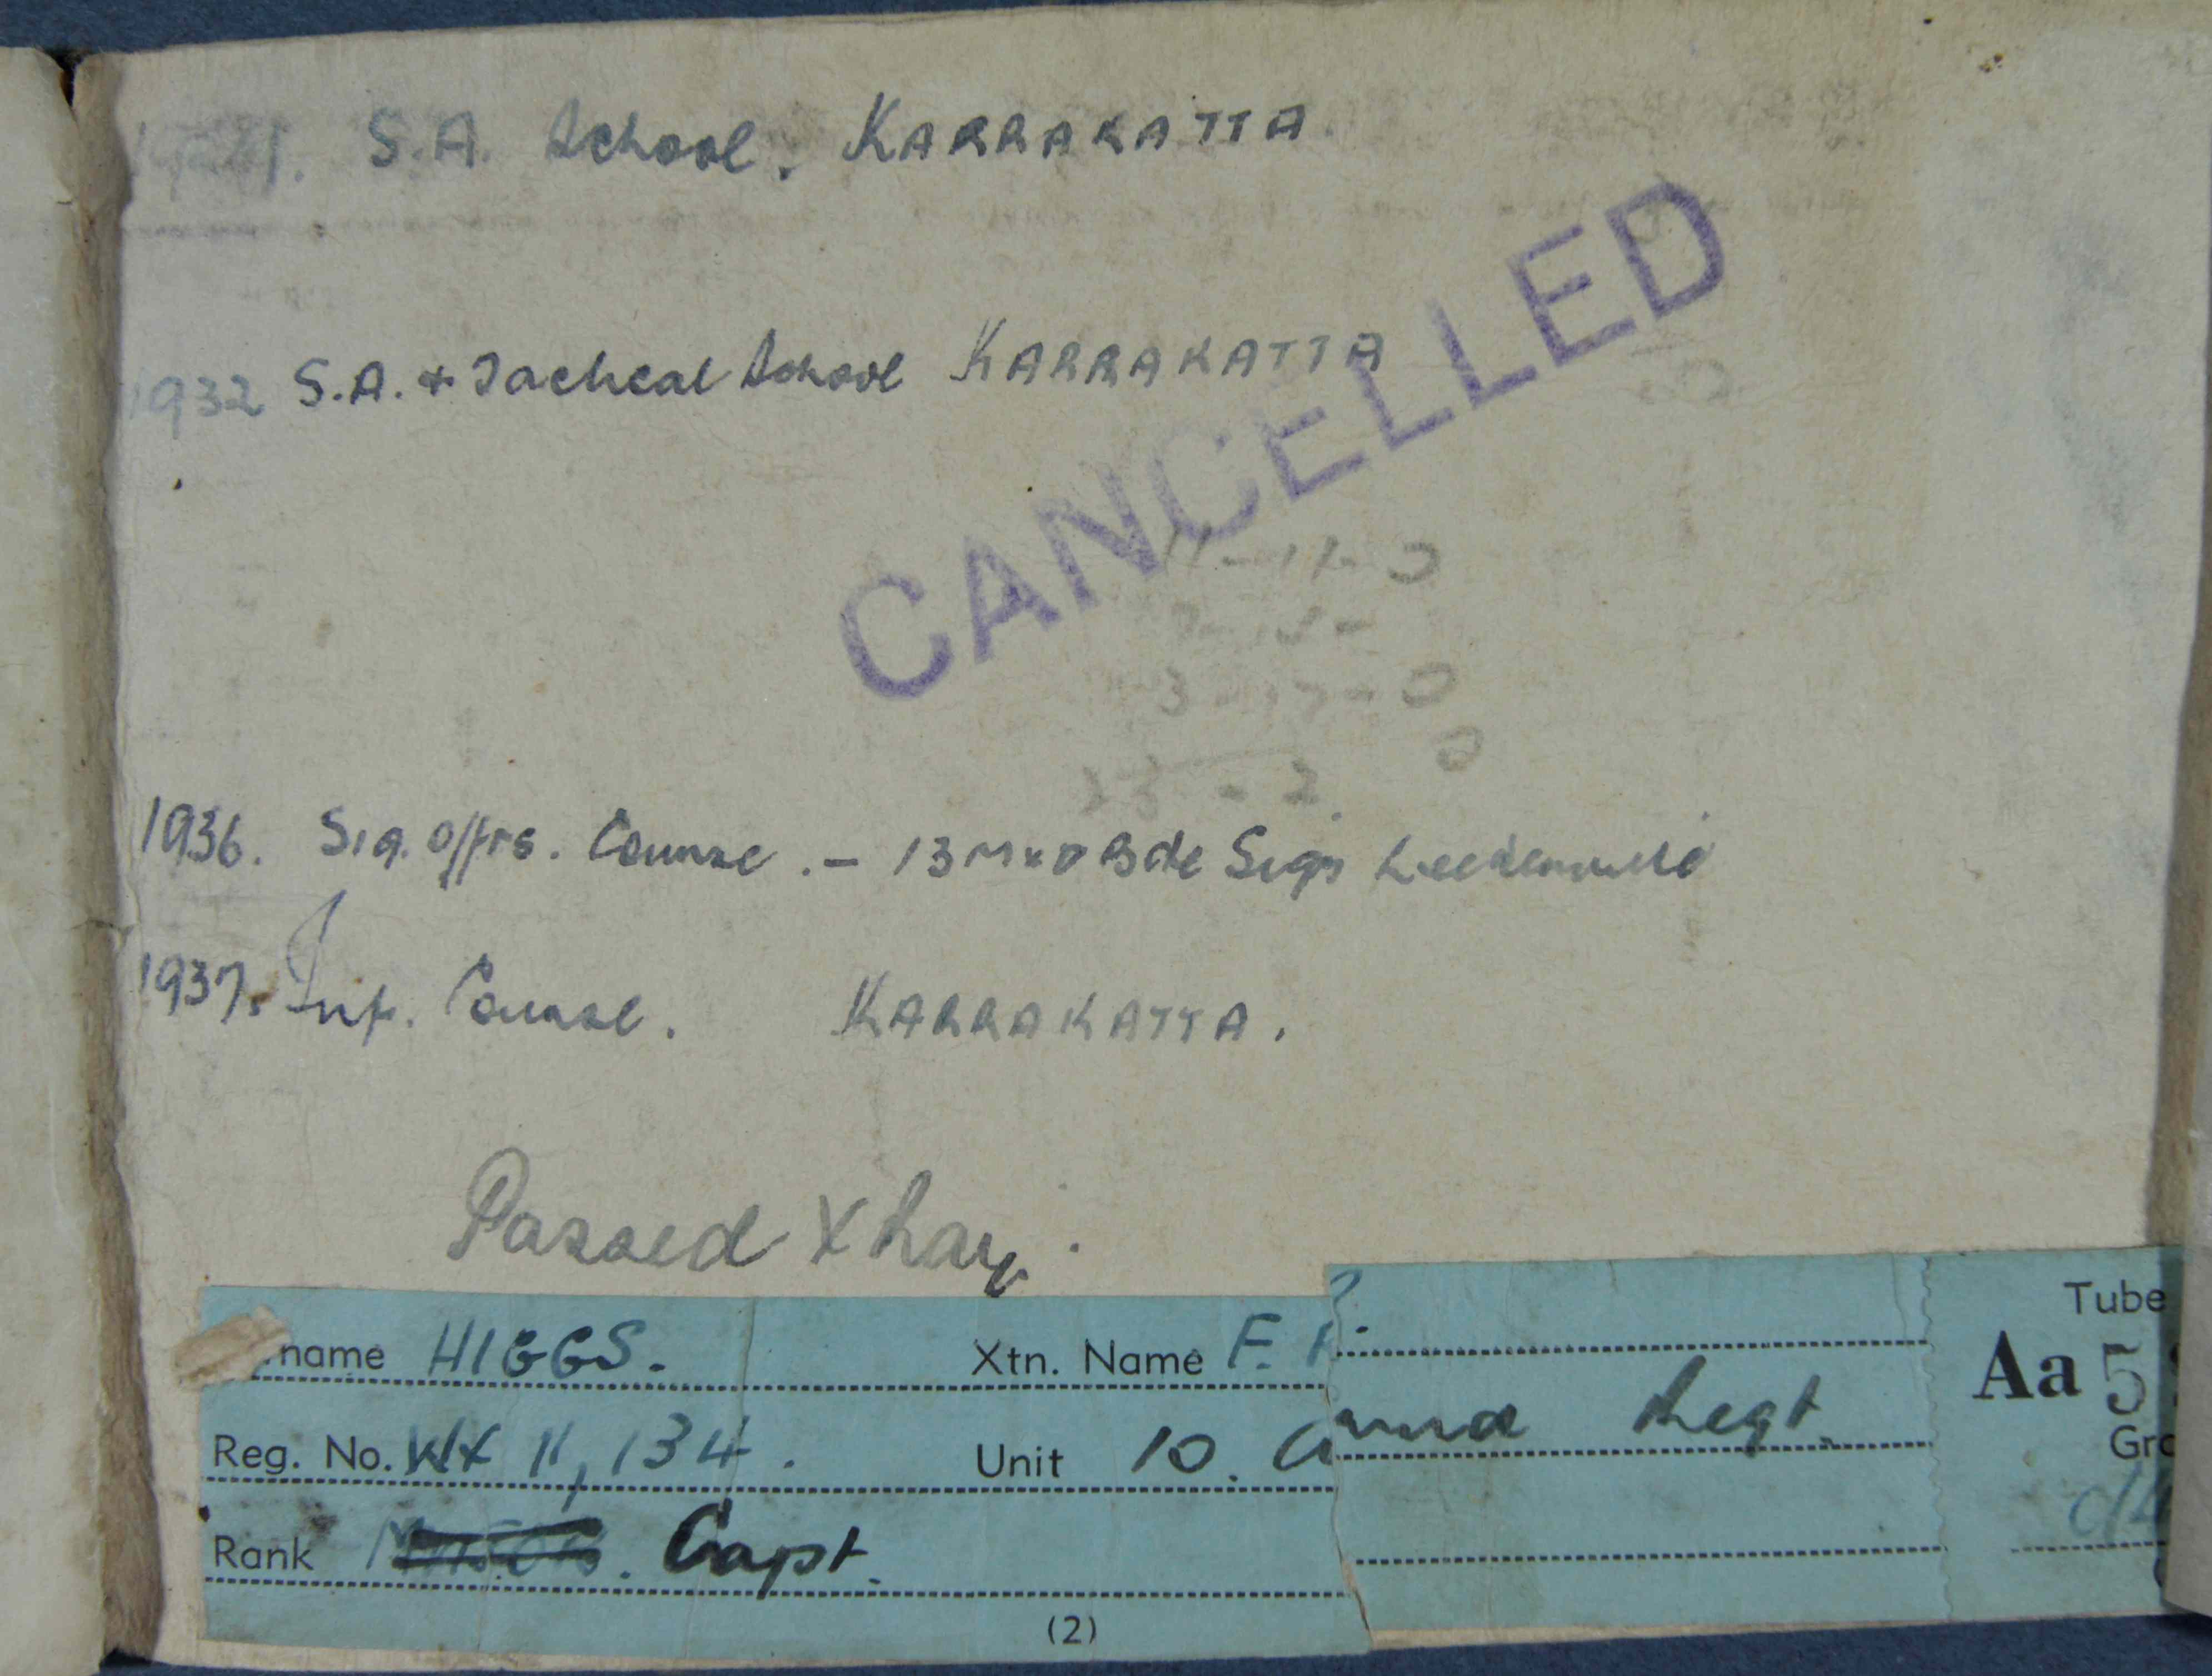 S.A. School. KARRAKATTA
1932 S.A. + Tactical School KARRAKATTA
CANCELLED
11-11-0
1936. Sig. Offrs. Course. - 13 Mxd Bde Sigs
1937. Inf. Course. KARRAKATTA.
Passed X Ray.
name HIGGS. Xtn. Name F.
Reg. No. WX 11,134. Unit 10. Regt.
Rank Capt.
(2)
Tube
Aa 5